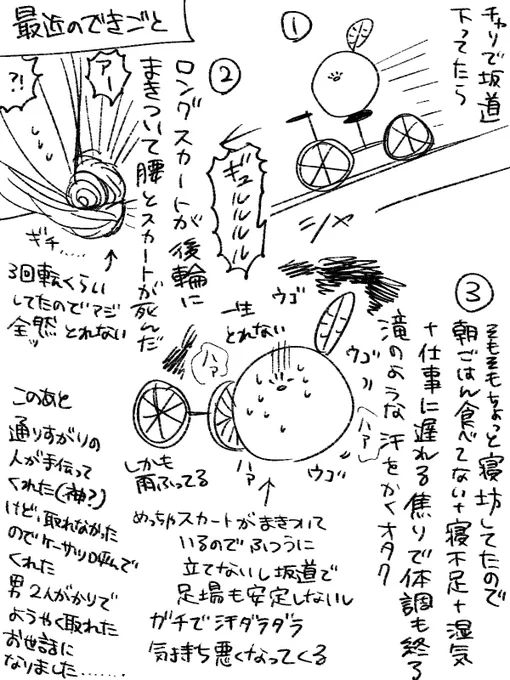 最近のできごと
①
チャリで坂道
下ってたら
シャ
②
ロングスカートが後輪に
まきついて腰とスカートが死んだ
ギュルルルルル
アー
?!
ギチ……
3回転くらい
してたのでマジ
全然とれない
③
そもそもちょっと寝坊してたので
朝ごはん食べてない+寝不足+湿気
+仕事に遅れる焦りで体調も終る
滝のような汗をかくオタク
一生
とれない
ウゴ
ウゴ
ウゴ
ハァ
ハァ
ハァ
しかも
雨ふってる
めっちゃスカートがまきついて
いるのでふつうに
立てないし坂道で
足場も安定しないし
ガチで汗ダラダラ
気持ち悪くなってくる
このあと
通りすがりの
人が手伝って
くれた(神?)
けど、取れなかった
のでケーサツ呼んで
くれた
男2人がかりで
ようやく取れた
お世話に
なりました………